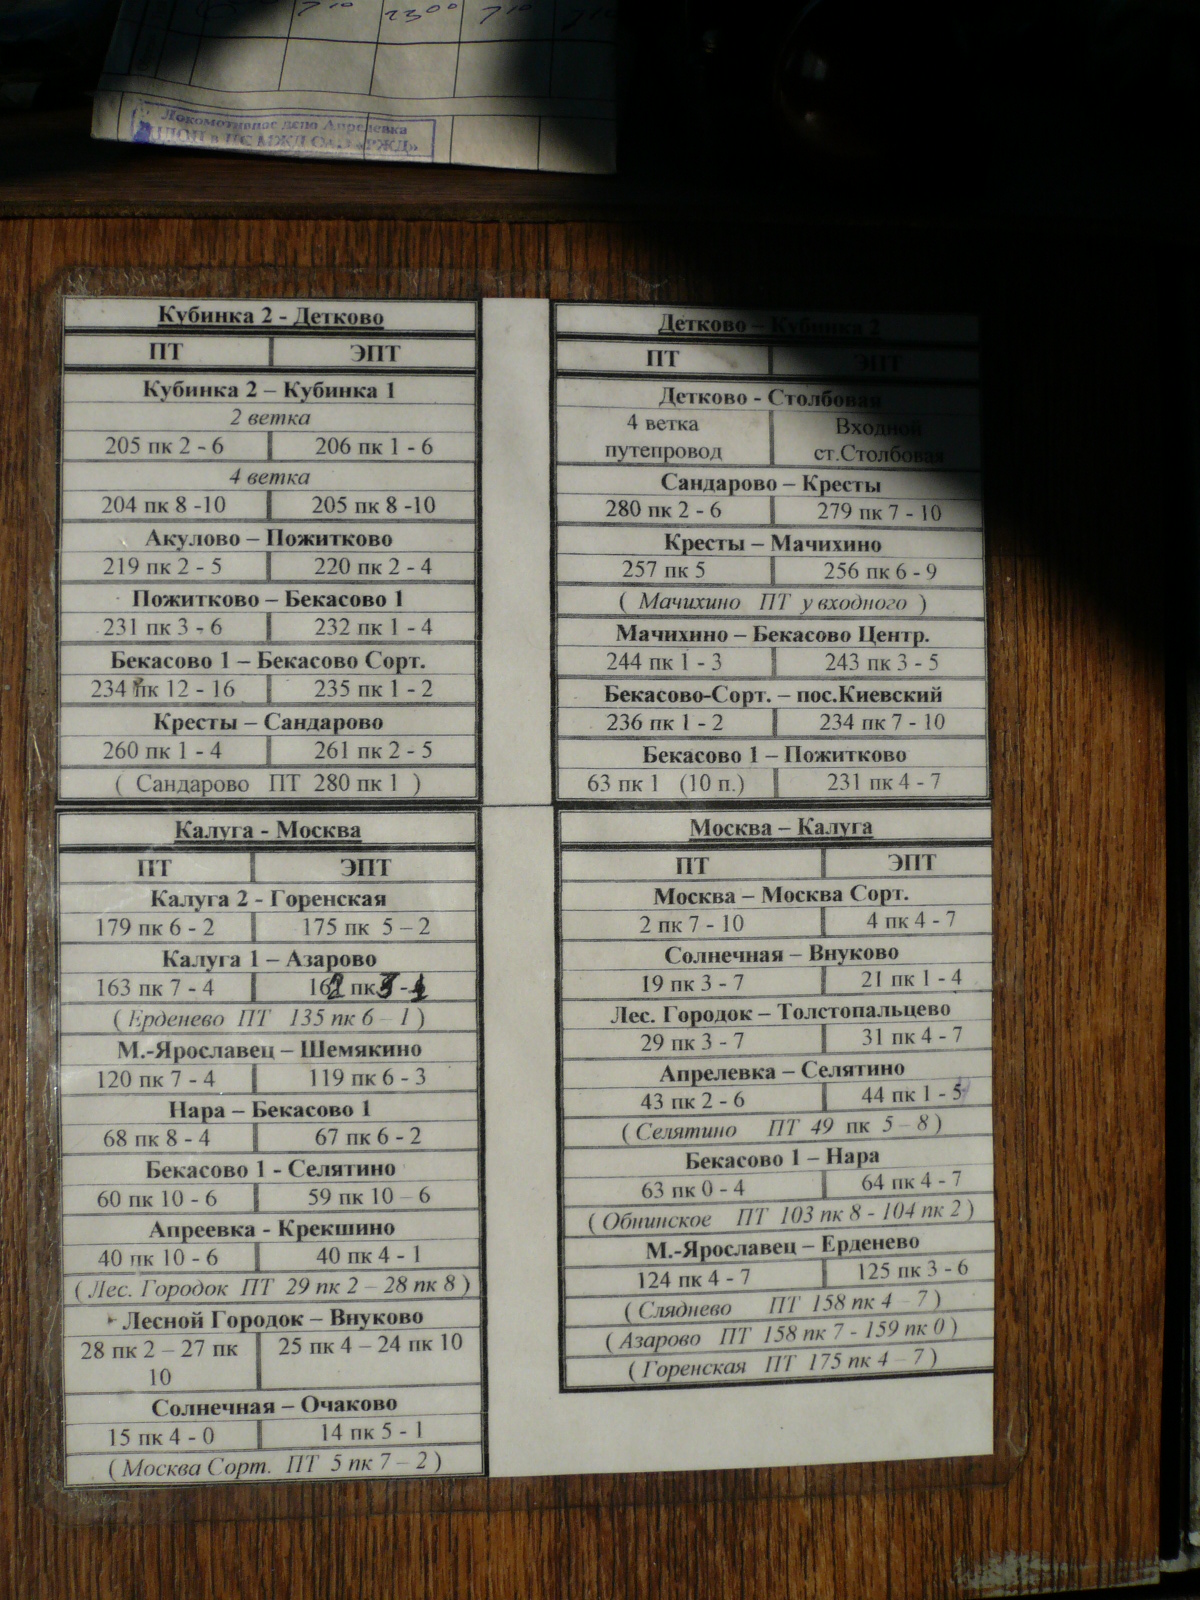 7 10 23 00 7 10
Локомотивное депо Апрелевка
МЖД ОАО «РЖД»
Кубинка 2 - Детково
ПТ ЭПТ
Кубинка 2 – Кубинка 1
2 ветка
205 пк 2 - 6 206 пк 1 - 6
4 ветка
204 пк 8 -10 205 пк 8 -10
Акулово – Пожитково
219 пк 2 - 5 220 пк 2 - 4
Пожитково – Бекасово 1
231 пк 3 - 6 232 пк 1 - 4
Бекасово 1 – Бекасово Сорт.
234 пк 12 - 16 235 пк 1 - 2
Кресты – Сандарово
260 пк 1 - 4 261 пк 2 - 5
( Сандарово ПТ 280 пк 1 )
Детково – Кубинка 2
ПТ ЭПТ
Детково - Столбовая
4 ветка Входной
путепровод ст.Столбовая
Сандарово – Кресты
280 пк 2 - 6 279 пк 7 - 10
Кресты – Мачихино
257 пк 5 256 пк 6 - 9
( Мачихино ПТ у входного )
Мачихино – Бекасово Центр.
244 пк 1 - 3 243 пк 3 - 5
Бекасово-Сорт. – пос.Киевский
236 пк 1 - 2 234 пк 7 - 10
Бекасово 1 – Пожитково
63 пк 1 (10 п.) 231 пк 4 - 7
Калуга - Москва
ПТ ЭПТ
Калуга 2 - Горенская
179 пк 6 - 2 175 пк 5 – 2
Калуга 1 – Азарово
163 пк 7 - 4 162 пк 3 - 1
( Ерденево ПТ 135 пк 6 – 1 )
М.-Ярославец – Шемякино
120 пк 7 - 4 119 пк 6 - 3
Нара – Бекасово 1
68 пк 8 - 4 67 пк 6 - 2
Бекасово 1 - Селятино
60 пк 10 - 6 59 пк 10 – 6
Апреевка - Крекшино
40 пк 10 - 6 40 пк 4 - 1
( Лес. Городок ПТ 29 пк 2 – 28 пк 8 )
Лесной Городок – Внуково
28 пк 2 – 27 пк 25 пк 4 – 24 пк 10
10
Солнечная – Очаково
15 пк 4 - 0 14 пк 5 - 1
( Москва Сорт. ПТ 5 пк 7 – 2 )
Москва – Калуга
ПТ ЭПТ
Москва – Москва Сорт.
2 пк 7 - 10 4 пк 4 - 7
Солнечная – Внуково
19 пк 3 - 7 21 пк 1 - 4
Лес. Городок – Толстопальцево
29 пк 3 - 7 31 пк 4 - 7
Апрелевка – Селятино
43 пк 2 - 6 44 пк 1 - 5
( Селятино ПТ 49 пк 5 – 8 )
Бекасово 1 – Нара
63 пк 0 - 4 64 пк 4 - 7
( Обнинское ПТ 103 пк 8 - 104 пк 2 )
М.-Ярославец – Ерденево
124 пк 4 - 7 125 пк 3 - 6
( Сляднево ПТ 158 пк 4 – 7 )
( Азарово ПТ 158 пк 7 - 159 пк 0 )
( Горенская ПТ 175 пк 4 – 7 )